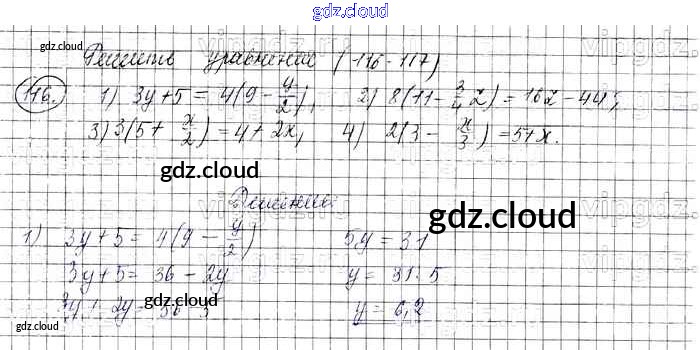 gdz.cloud
gdz.cloud vipgdz.
Решить уравнения (116-117)
116. 1) 3y+5 = 4(9 - y/2), 2) 8(11 - 3/4 z) = 16z - 44;
3) 3(5 + x/2) = 4 + 2x, 4) 2(3 - x/3) = 5 + x.
gdz.cloud
Решение
gdz.cloud
1) 3y + 5 = 4(9 - y/2) 5y = 31
3y + 5 = 36 - 2y y = 31 : 5
3y + 2y = 36 - 5 y = 6,2
gdz.cloud
gdz.cloud gdz.cloud